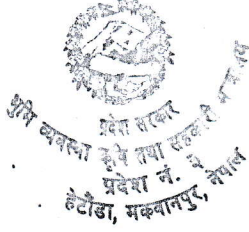 प्रदेश सरकार
भूमि व्यवस्था कृषि तथा सहकारी
प्रदेश नं. ३, नेपाल
हेटौंडा, मकवानपुर,